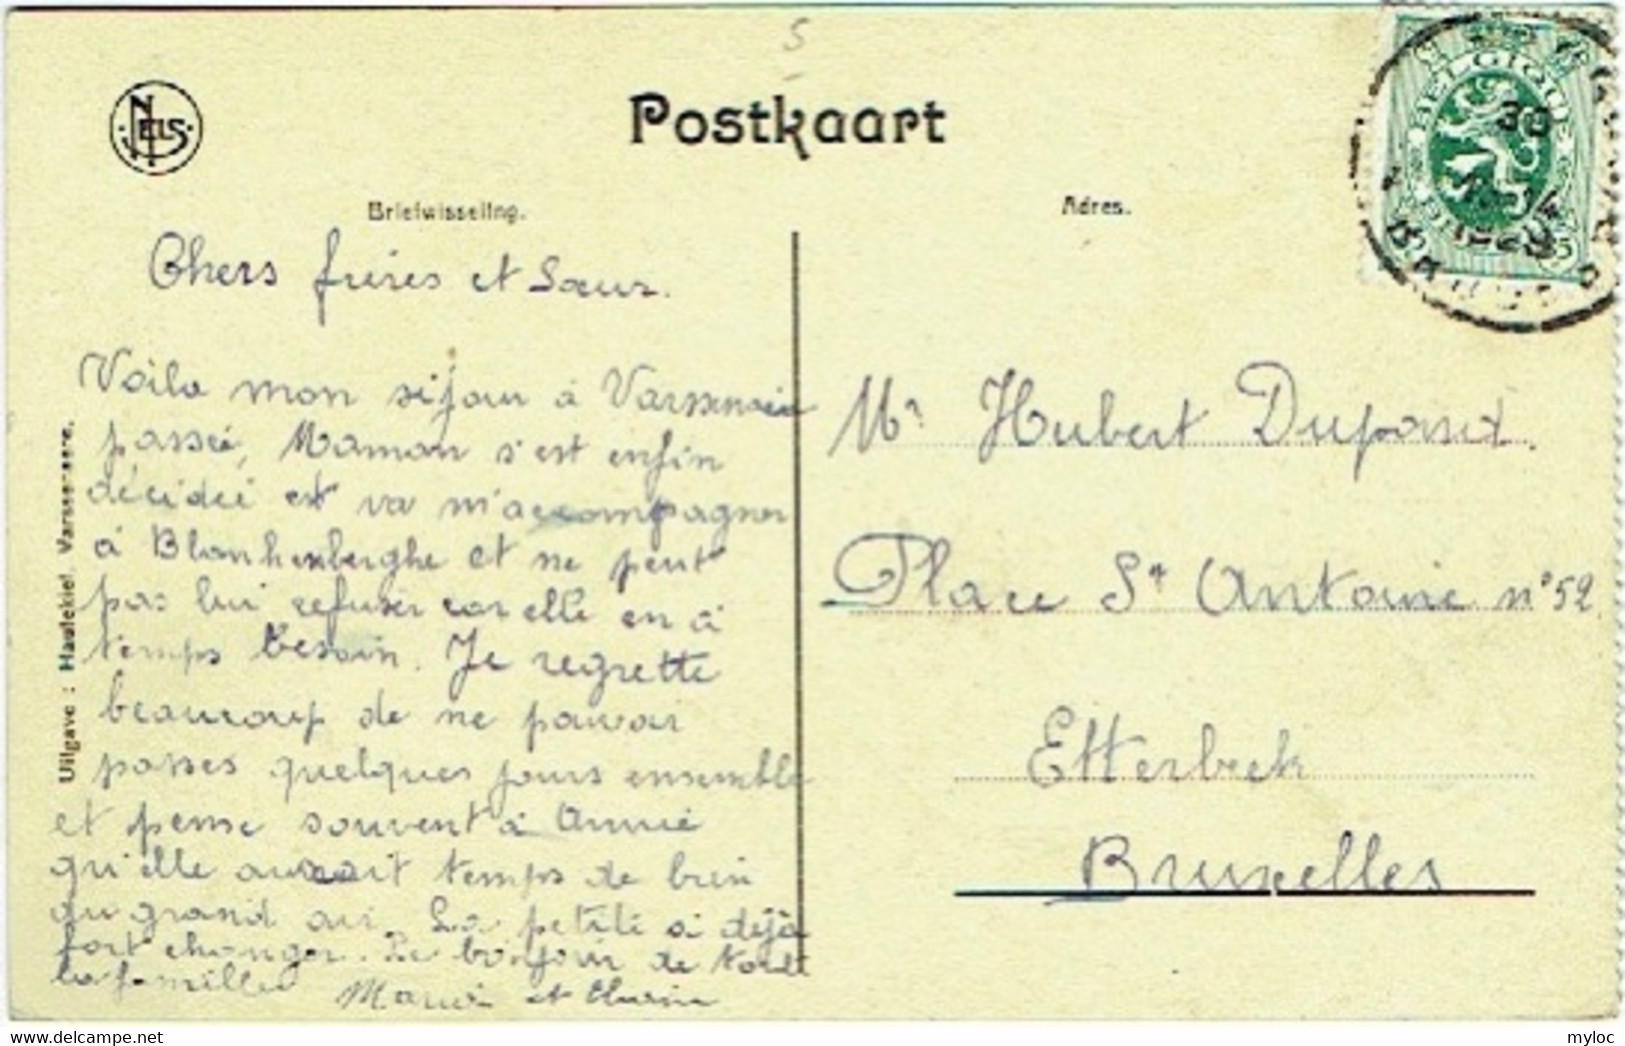 S
NELS
Postkaart
BELGIQUE
BELGIË
35
Briefwisseling.
Adres.
Chers frères et Sœur.
Voila mon séjour à Varssenaere
passée, Maman s'est enfin
décidée est va m'accompagner
à Blankenberghe et ne peut
pas lui refuser car elle en à
temps besoin. Je regrette
beaucoup de ne pouvoir
passes quelques jours ensemble
et pense souvent à Annie
qu'elle aurait temps de bien
au grand air. La petite a déjà
fort changer. Le bonjour de toute
la famille
Maria et
Mr Hubert Dupond.
Place St Antoine n° 52
Etterbeek
Bruxelles
Uitgave : Haulekiet. Varssenaere.
myloc